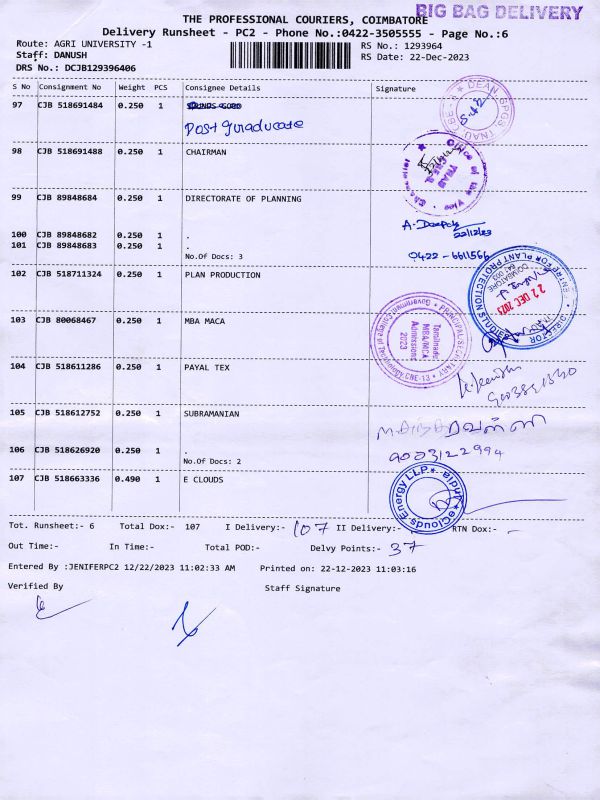 THE PROFESSIONAL COURIERS, COIMBATORE
BIG BAG DELIVERY
Delivery Runsheet - PC2 - Phone No.:0422-3505555 - Page No.:6
Route: AGRI UNIVERSITY -1
RS No.: 1293964
Staff: DANUSH
RS Date: 22-Dec-2023
DRS No.: DCJB129396406
S No Consignment No Weight PCS Consignee Details Signature
97 CJB 518691484 0.250 1
Post graduate
DEAN SPGS TNAU CBE
98 CJB 518691488 0.250 1 CHAIRMAN
Office of the Vice - Chancellor
TNAU
99 CJB 89848684 0.250 1 DIRECTORATE OF PLANNING
22/12/23
100 CJB 89848682 0.250 1 .
101 CJB 89848683 0.250 1 .
No.Of Docs: 3
0422 - 6611566
102 CJB 518711324 0.250 1 PLAN PRODUCTION
CENTRE FOR PLANT PROTECTION STUDIES
COIMBATORE
22 DEC 2023
103 CJB 80068467 0.250 1 MBA MACA
PRINCIPAL/SECRETARY
Government College of Technology CBE-13
Tamilnadu
MBA/MCA
Admissions
2023
104 CJB 518611286 0.250 1 PAYAL TEX
105 CJB 518612752 0.250 1 SUBRAMANIAN
106 CJB 518626920 0.250 1 .
No.Of Docs: 2
9003122994
107 CJB 518663336 0.490 1 E CLOUDS
eClouds Energy LLP. India
Tot. Runsheet:- 6 Total Dox:- 107 I Delivery:- 107 II Delivery:- - RTN Dox:- -
Out Time:- In Time:- Total POD:- Delvy Points:- 37
Entered By :JENIFERPC2 12/22/2023 11:02:33 AM Printed on: 22-12-2023 11:03:16
Verified By Staff Signature